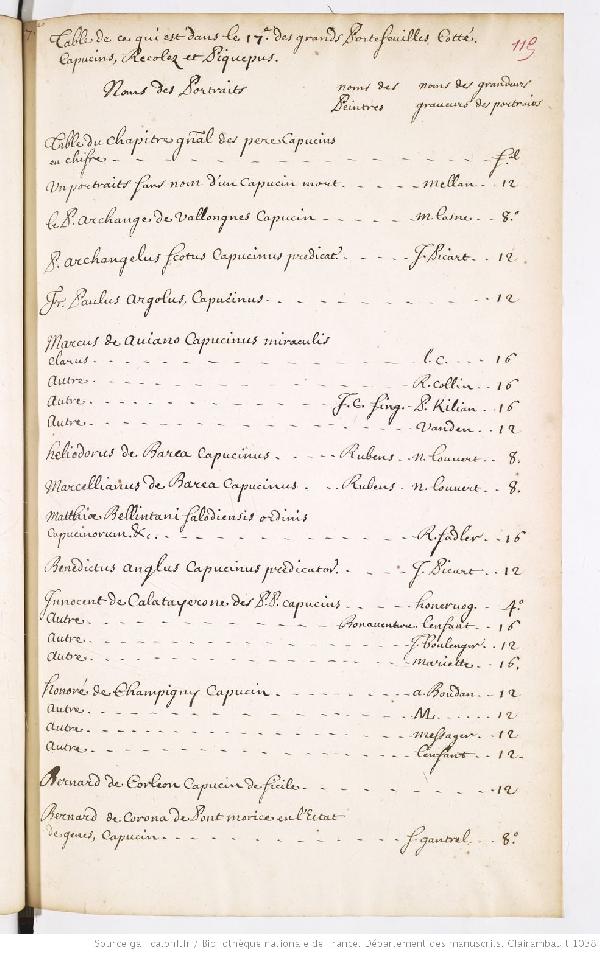 Table de ce qui est dans le 17.e des grands Portefeuilles, Cotté.
Capucins, Recolez et Piquepus.
119
Noms des Portraits noms des Peintres noms des grandeurs graveurs des portraits
Table du chapitre gñal des pere Capucins
en chifre - - - fol
Un portraits sans nom d'un Capucin mort - - - mellan - - 12
le P. archange de Vallongnes Capucin - - - m. lasne - - 8.o
P. archangelus scotus Capucinus predicat.r - - - J. Picart - - 12
Fr. Paulus argolus, Capucinus - - - 12
Marcus de Aviano Capucinus miraculis
clarus - - - l. c. - - 16
Autre - - - R. Collin - - 16
Autre - - - J. C. sing. - P. Kilian - - 16
Autre - - - Vanden - - 12
heliodorus de Barea Capucinus - - - Rubens - - n. louvert - - 8.
Marcellianus de Barea Capucinus - - - Rubens - n. louvert - - 8.
Matthiæ Bellintani salodiensis ordinis
Capucinorum. &c. - - - R. sadler - - 16
Benedictus anglus Capucinus predicator - - - J. Picart - - 12
Innocent de Calatayerone des P.P. capucins - - - honervog - - 4.o
Autre - - - Bonaventure lenfant - - 16
Autre - - - J. Boulenger - - 12
Autre - - - mariette - - 16.
honoré de Champigny Capucin - - - a. Boudan - - 12
Autre - - - M. - - - 12
Autre - - - messager - - 12
Autre - - - lenfant - - 12
Bernard de Corleon Capucin de sicile - - - 12
Bernard de Corona de Pont morice en l'Etat
de genes, Capucin - - - f. gantrel - - 8.o
Source gallica.bnf.fr / Bibliothèque nationale de France. Département des manuscrits. Clairambault 1038